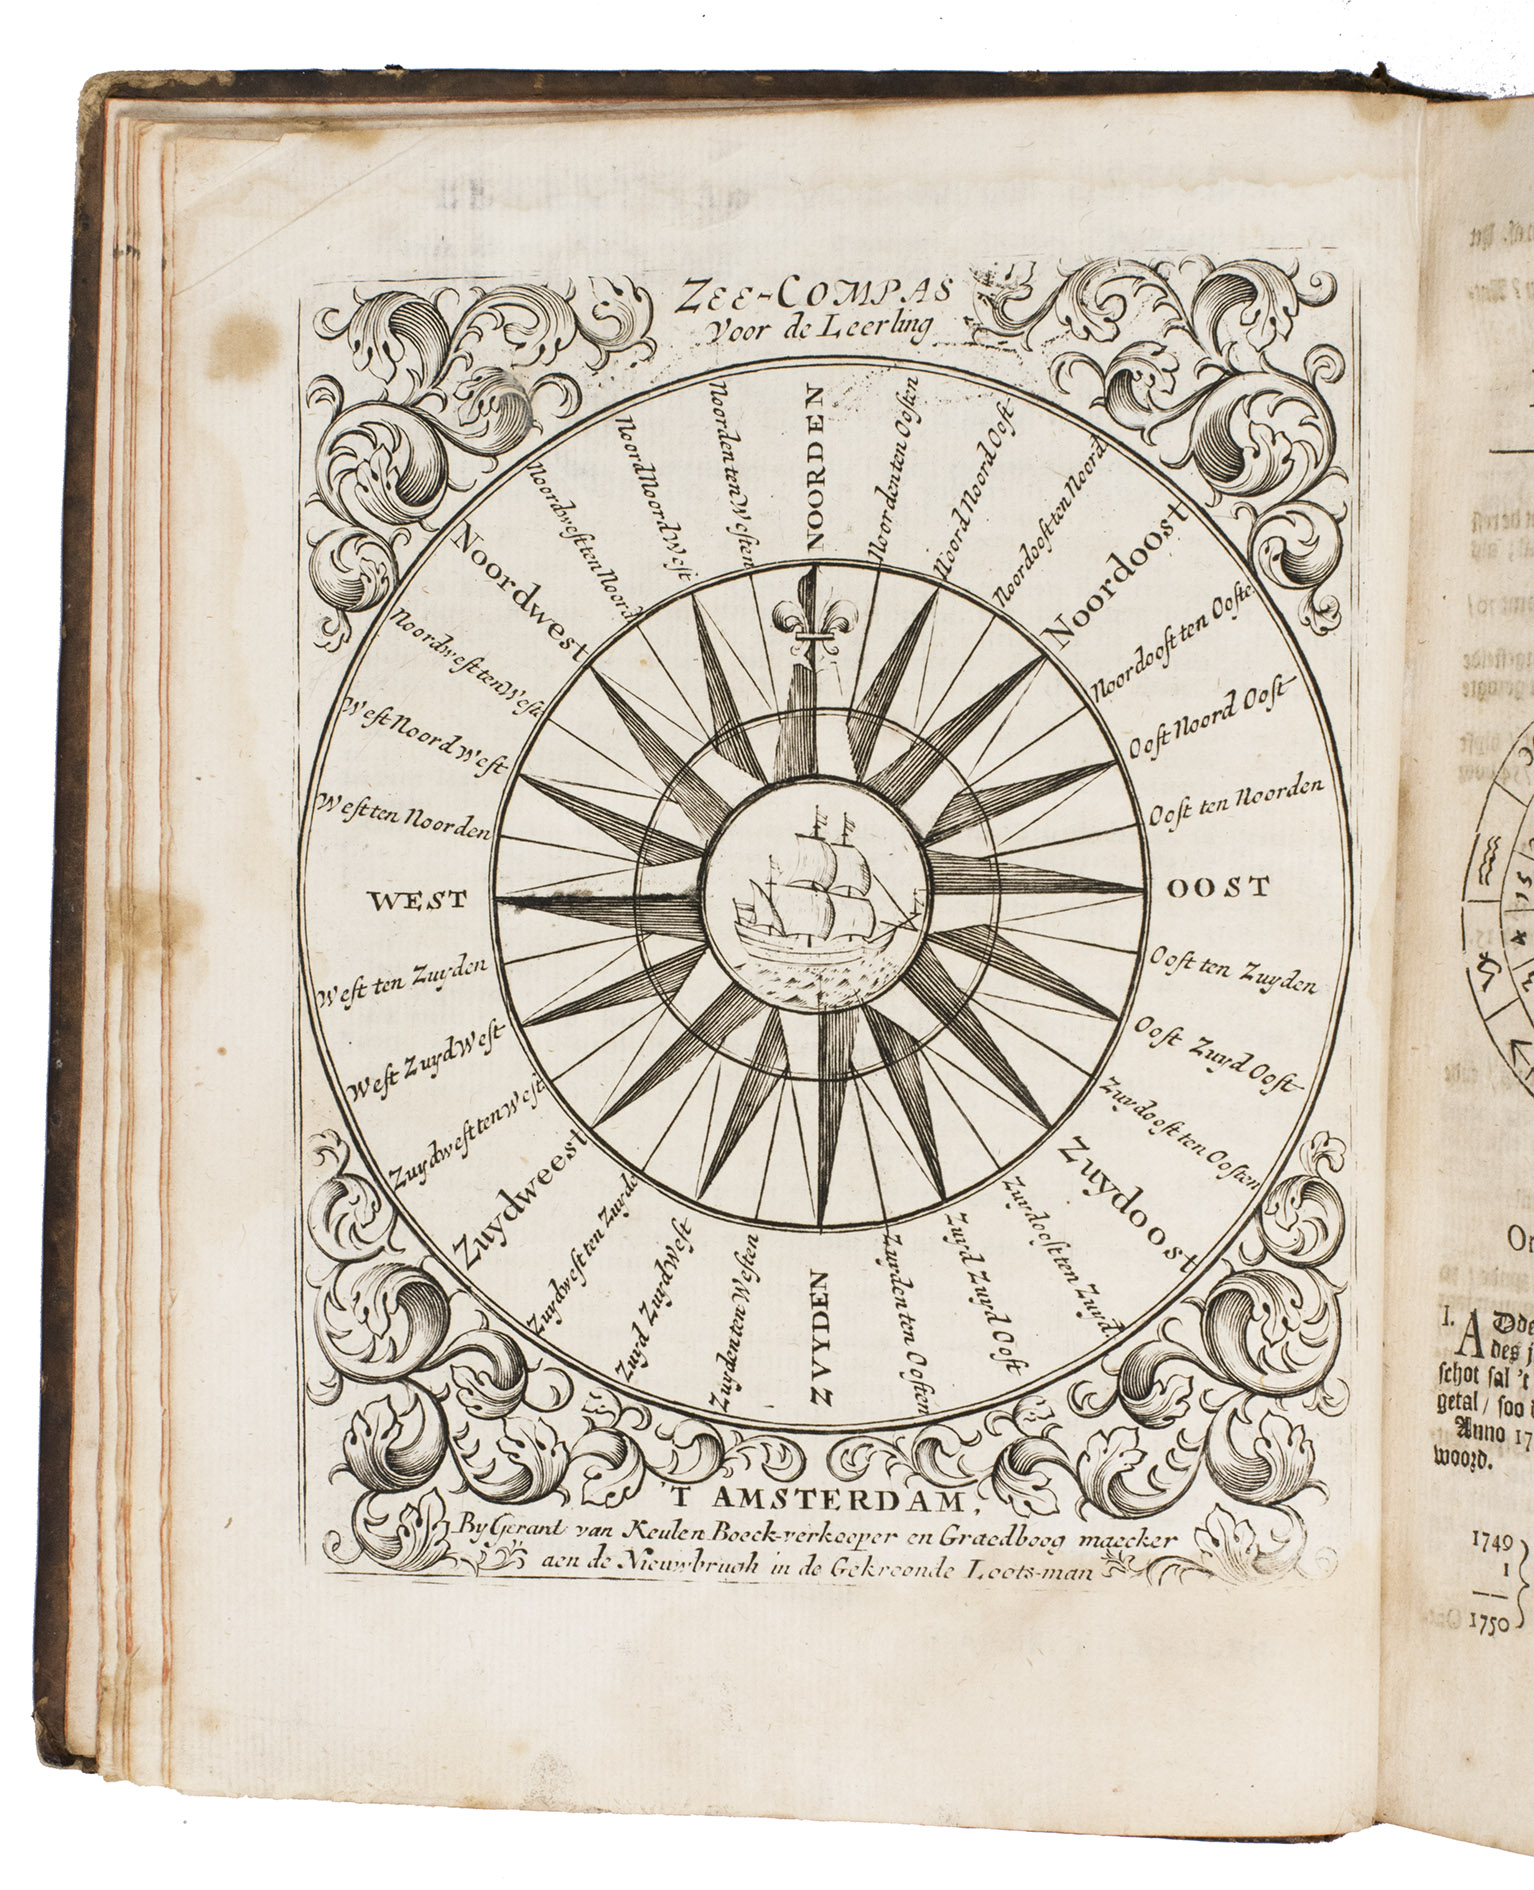 ZEE-COMPAS
Voor de Leerling
NOORDEN
Noorden ten Oosten
Noord Noord Oost
Noordoost ten Noord
Noordoost
Noordoost ten Ooste
Oost Noord Oost
Oost ten Noorden
OOST
Oost ten Zuyden
Oost Zuyd Oost
Zuydoost ten Oosten
Zuydoost
Zuydoost ten Zuyd
Zuyd Zuyd Oost
Zuyden ten Oosten
ZVYDEN
Zuyden ten Westen
Zuyd Zuyd West
Zuydwest ten Zuyde
Zuydweest
Zuydwest ten West
West Zuyd West
West ten Zuyden
WEST
West ten Noorden
West Noord West
Noordwest ten Weste
Noordwest
Noordwest ten Noord
Noord Noord West
Noorden ten Westen
'T AMSTERDAM,
By Gerant van Keulen Boeck-verkooper en Graedboog maecker
aen de Nieuwbrugh in de Gekroonde Loots-man
I. ADde
des j
schot sal 't
getal / soo
Anno 17
woord.
1749
1
1750